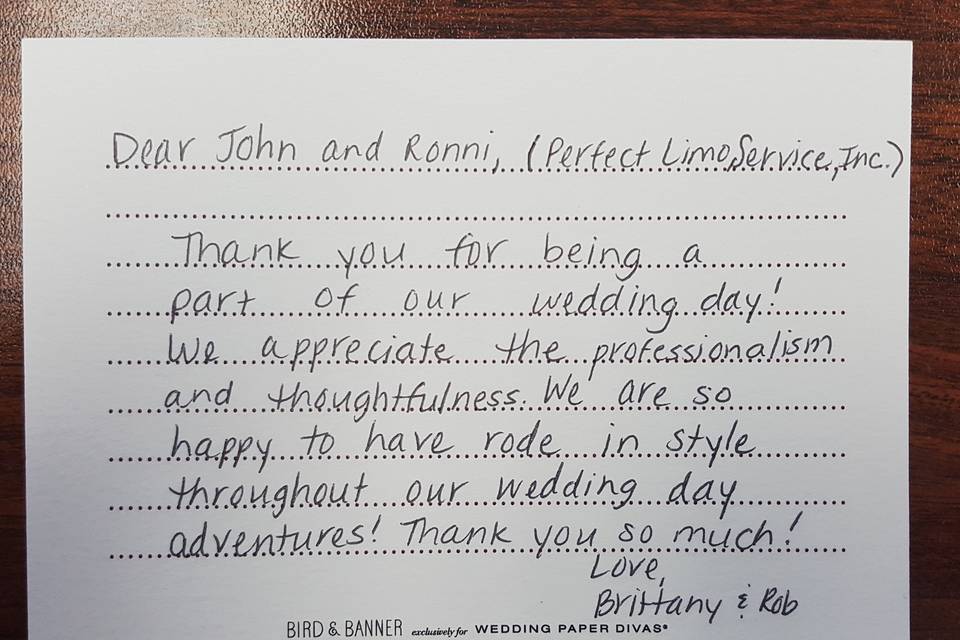 Dear John and Ronni, (Perfect Limo Service, Inc.)
Thank you for being a
part of our wedding day!
We appreciate the professionalism
and thoughtfulness. We are so
happy to have rode in style
throughout our wedding day
adventures! Thank you so much!
Love,
Brittany & Rob
BIRD & BANNER exclusively for WEDDING PAPER DIVAS®